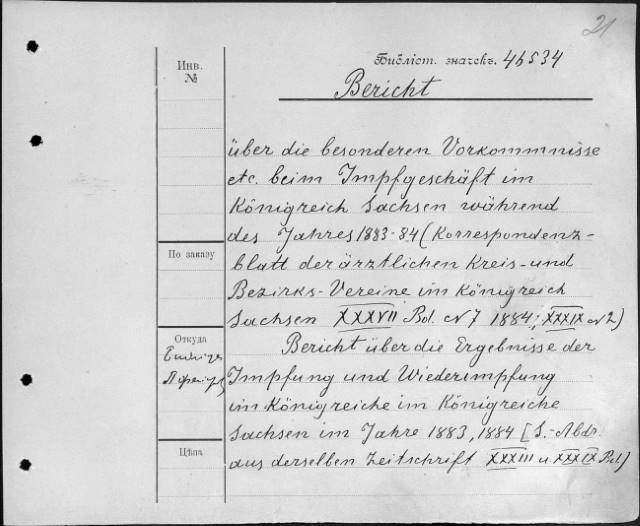 21
Инв.
№
Библіот. значекъ. 46534
Bericht
über die besonderen Vorkommnisse
etc. beim Impfgeschäft im
Königreich Sachsen während
des Jahres 1883-84 (Korrespondenz-
blatt der ärztlichen Kreis- und
Bezirks-Vereine im Königreich
Sachsen XXXVII Bd. № 7 1884; XXXIX № 2)
Bericht über die Ergebnisse der
Impfung und Wiederimpfung
im Königreiche im Königreiche
Sachsen im Jahre 1883, 1884 [S.-Abdr.
aus derselben Zeitschrift XXXIII u. XXXIX Bd.)
По заказу
Откуда
Цѣна